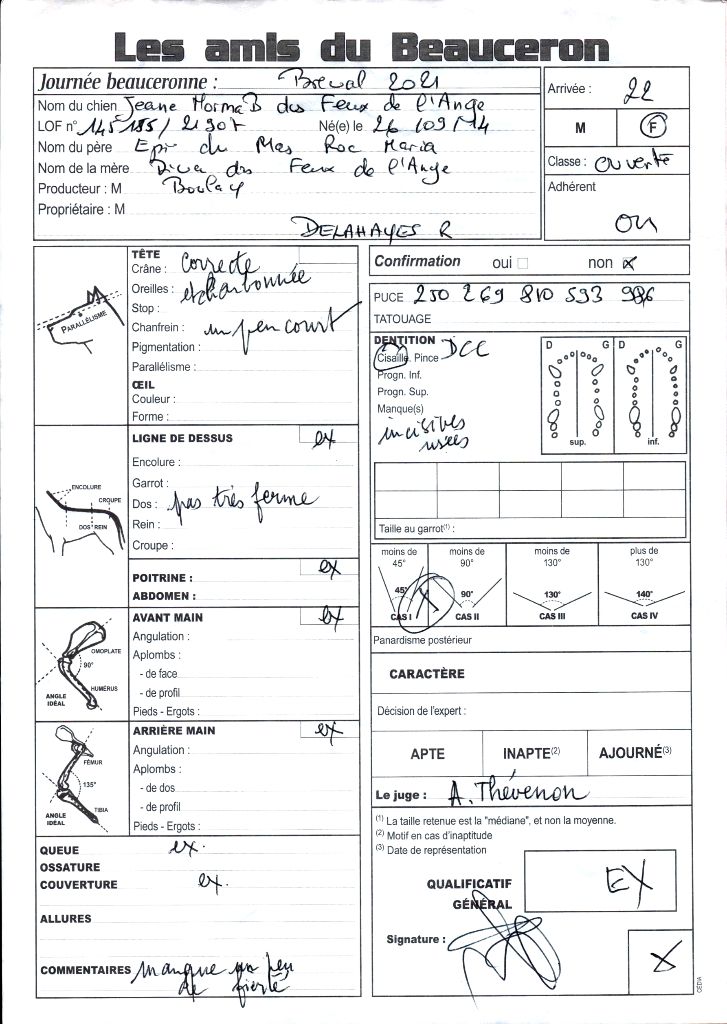 Les amis du Beauceron
Journée beauceronne : Breval 2021
Arrivée : 22
Nom du chien Jeane Norma B des Feux de l'Ange
LOF n° 145185/21907 Né(e) le 26/09/14
M F
Nom du père Epi du Mas Roc Maria
Nom de la mère Diva des Feux de l'Ange
Classe : ouverte
Producteur : M Boulay
Adhérent
Propriétaire : M
oui
DELAHAYES R
TÊTE
Crâne : correcte
Oreilles : et charbonnée
Stop :
Chanfrein : un peu court
Pigmentation :
Parallélisme :
ŒIL
Couleur :
Forme :
PARALLÉLISME
LIGNE DE DESSUS ex
Encolure :
Garrot :
Dos : pas très ferme
Rein :
Croupe :
ENCOLURE
CROUPE
DOS REIN
POITRINE : ex
ABDOMEN :
AVANT MAIN ex
Angulation :
Aplombs :
- de face
- de profil
Pieds - Ergots :
OMOPLATE
90°
HUMÉRUS
ANGLE IDÉAL
ARRIÈRE MAIN ex
Angulation :
Aplombs :
- de dos
- de profil
Pieds - Ergots :
FÉMUR
135°
TIBIA
ANGLE IDÉAL
QUEUE ex.
OSSATURE
COUVERTURE ex.
ALLURES
COMMENTAIRES manque un peu
de fierté
Confirmation oui non x
PUCE 250 269 810 593 986
TATOUAGE
DENTITION DCC
Cisaille. Pince
Progn. Inf.
Progn. Sup.
Manque(s)
incisives
usées
D G D G
sup. inf.
Taille au garrot(1) :
moins de 45° moins de 90° moins de 130° plus de 130°
45° 90° 130° 140°
CAS I CAS II CAS III CAS IV
Panardisme postérieur
CARACTÈRE
Décision de l'expert :
APTE INAPTE(2) AJOURNÉ(3)
Le juge : A. Thévenon
(1) La taille retenue est la "médiane", et non la moyenne.
(2) Motif en cas d'inaptitude
(3) Date de représentation
QUALIFICATIF
GÉNÉRAL EX
Signature :
CEDIA